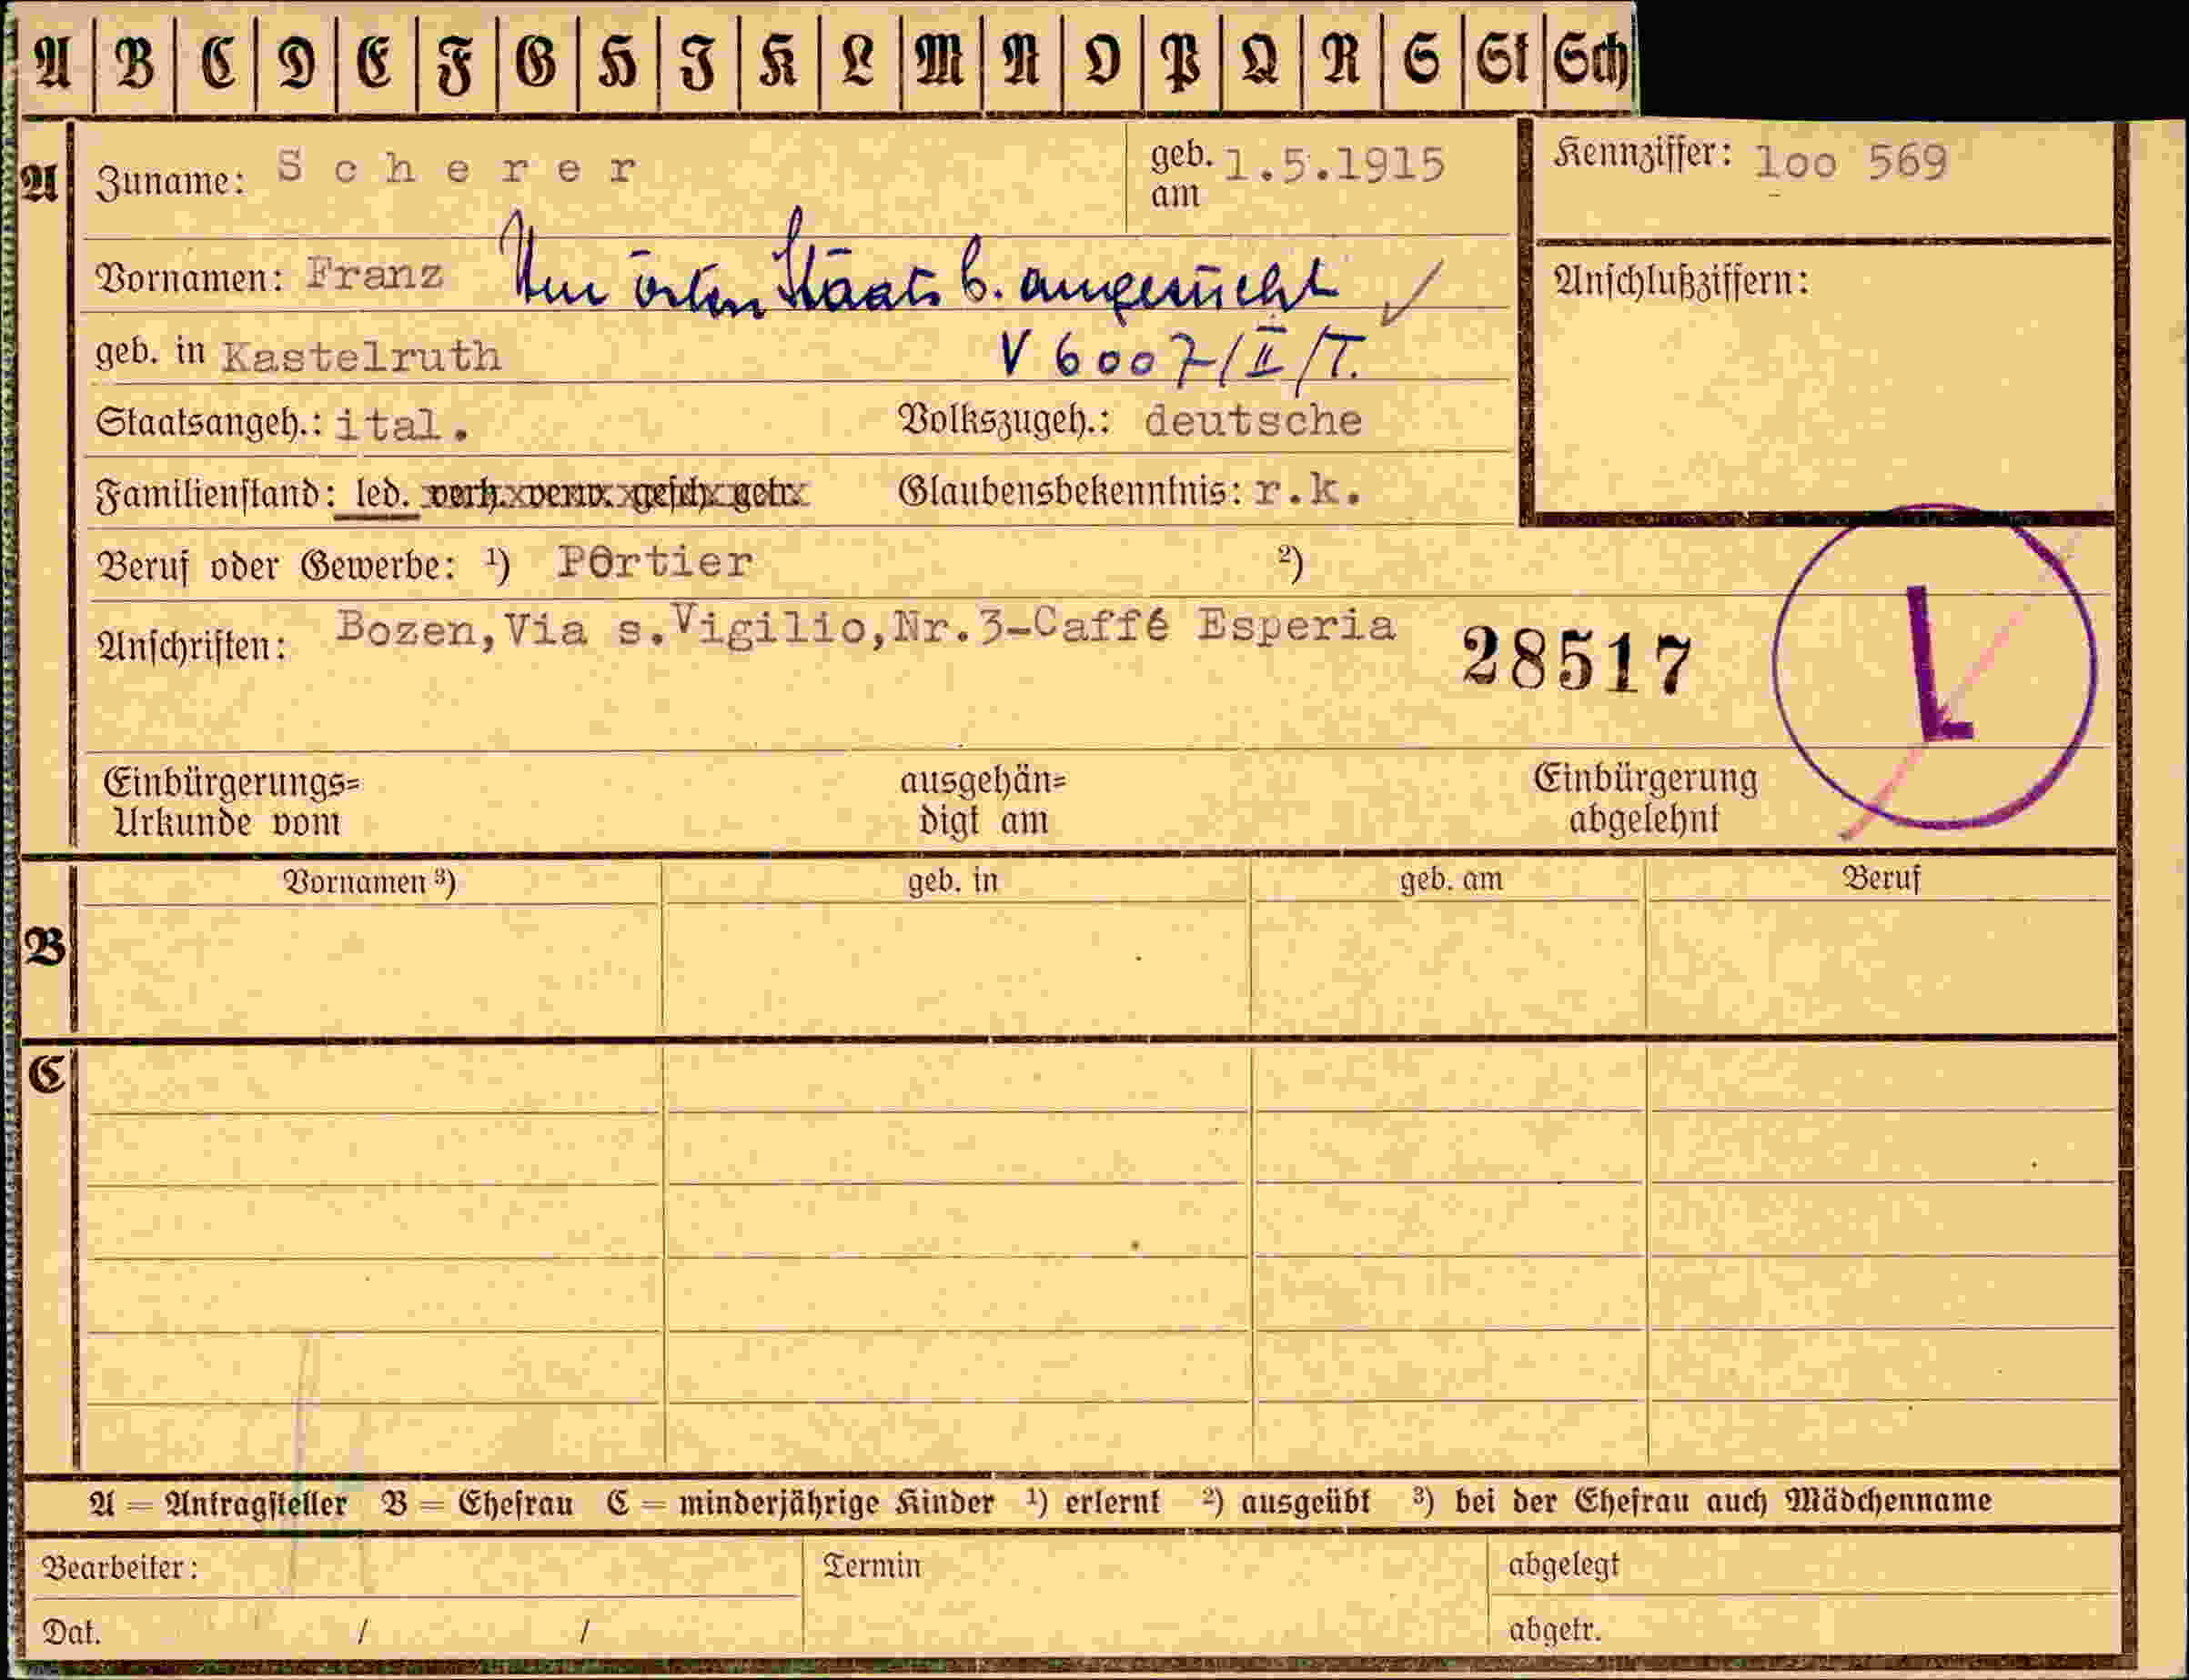 A B C D E F G H I K L M N O P Q R S St Sch
A Zuname: Scherer geb. am 1.5.1915 Kennziffer: 1oo 569
Vornamen: Franz Um österr. Staatsb. angesucht ✓ Anschlußziffern:
geb. in Kastelruth V 6007/II/T.
Staatsangeh.: ital. Volkszugeh.: deutsche
Familienstand: led. verh. verw. gesch. getr. Glaubensbekenntnis: r.k.
Beruf oder Gewerbe: ¹) Portier ²)
Anschriften: Bozen,Via s.Vigilio,Nr.3-Caffé Esperia 28517 L
Einbürgerungs= ausgehän= Einbürgerung
Urkunde vom digt am abgelehnt
B Vornamen ³) geb. in geb. am Beruf
C
A = Antragsteller B = Ehefrau C = minderjährige Kinder ¹) erlernt ²) ausgeübt ³) bei der Ehefrau auch Mädchenname
Bearbeiter: Termin abgelegt
Dat. / / abgetr.